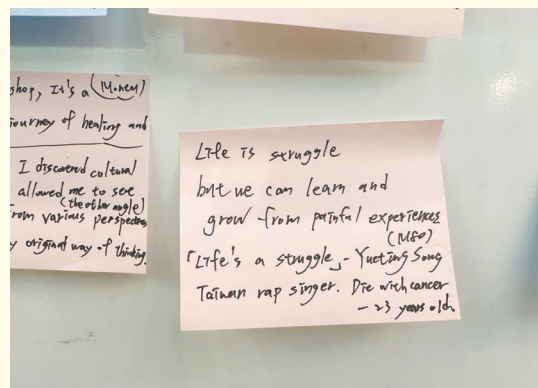 shop, It's a (Money)
journey of healing and
I discovered cultural
allowed me to see
(the other angle)
from various perspectives
y original way of thinking.
Life is struggle
but we can learn and
grow from painful experiences
(M80)
「Life's a struggle」- Yueting Song
Taiwan rap singer. Die with cancer
- 23 years old.